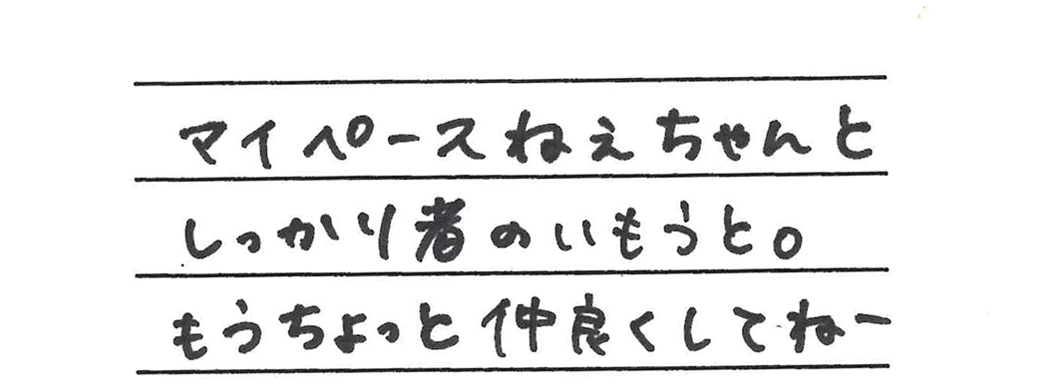 マイペースねぇちゃんと
しっかり者のいもうと。
もうちょっと仲良くしてねー